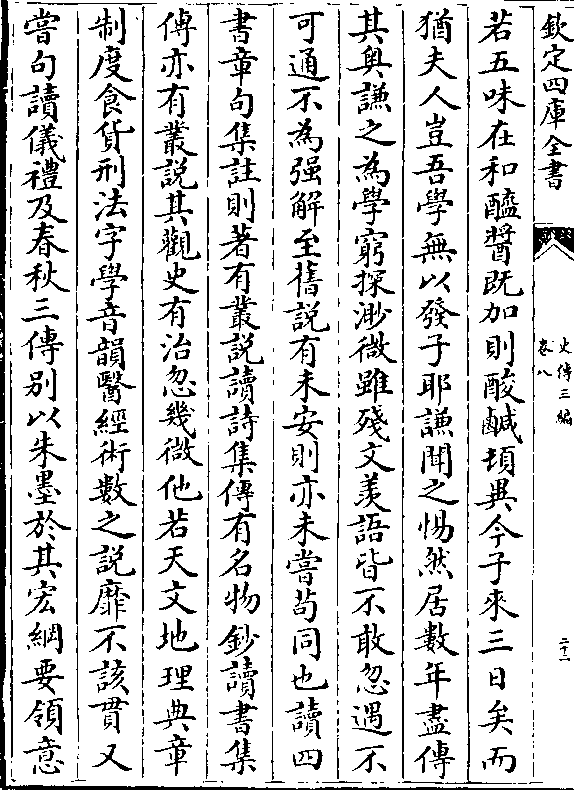 欽定四庫全書
史傳三編
卷八
二十二
若五味在和醯醬既加則酸鹹頓異今子來三日矣而
猶夫人豈吾學無以發子耶謙聞之惕然居數年盡傳
其奥謙之為學窮探渺微雖殘文羡語皆不敢忽遇不
可通不為强解至舊説有未安則亦未嘗苟同也讀四
書章句集註則著有叢説讀詩集傳有名物鈔讀書集
傳亦有叢説其觀史有治忽幾微他若天文地理典章
制度食貨刑法字學音韻醫經術數之説靡不該貫又
嘗句讀儀禮及春秋三傳别以朱墨於其宏綱要領意